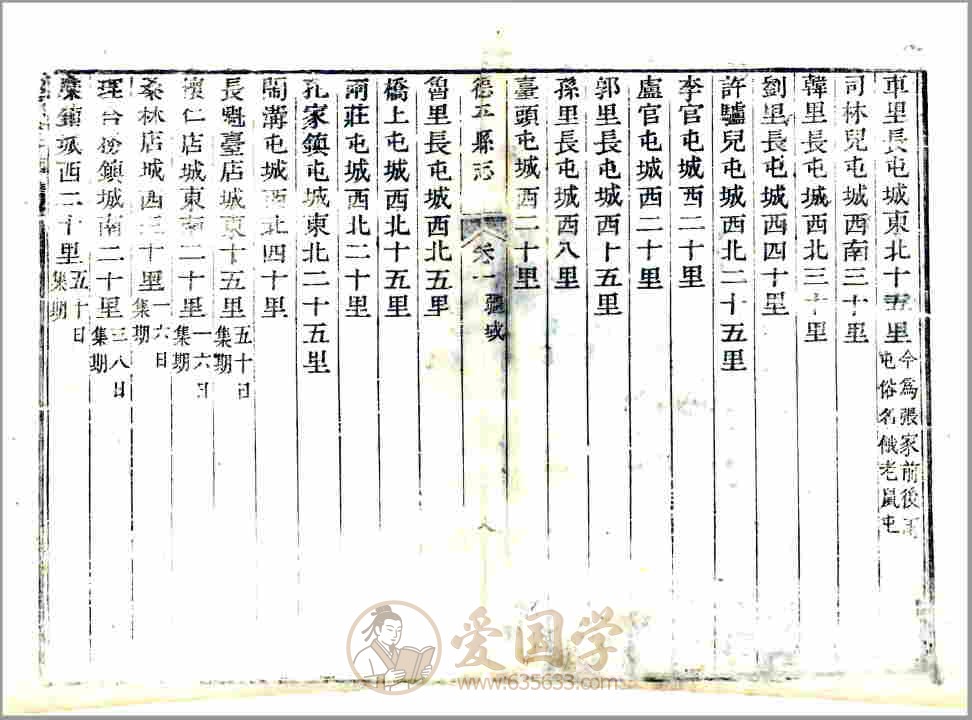 車里長屯城東北十五里今為張家前後
屯俗名餓老鼠屯
司林兒屯城西南三十里
韓里長屯城西北三十里
劉里長屯城西四十里
許驢兒屯城西北二十五里
李官屯城西二十里
盧官屯城西二十里
郭里長屯城西十五里
孫里長屯城西八里
臺頭屯城西二十里
德平縣志 卷一 疆域 八
魯里長屯城西北五里
橋上屯城西北十五里
莊屯城西北二十里
孔家鎮屯城東北二十五里
閻溝屯城西北四十里
長魁臺店城東十五里五十日集期
懷仁店城東南二十里一六日集期
桑林店城西三十里一六日集期
理合務鎮城南二十里三八日集期
鎮城西二十里五十日集期
爱国学
www.635633.com